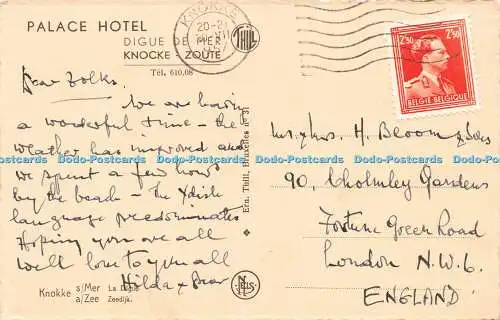 PALACE HOTEL
DIGUE DE MER
KNOCKE - ZOUTE
Tél. 610.08
KNOKKE
20-21
THILL
2F50 2F50
BELGIE-BELGIQUE
Dear Folks.
We are having
a wonderful time - the
weather has improved and
we spent a few hours
by the beach - The Ydish
language predominates
Hoping you are all
well love to you all
Hilda & Bear
Ern. Thill, Bruxelles n° 31
Mr & Mrs. H. Bloom & Sons
90, Cholmley Gardens
Fortune Green Road
London N.W.6.
ENGLAND
Knokke s/Mer La Digue
a/Zee Zeedijk
NELS
Dodo-Postcards Dodo-Postcards Dodo-Postcards Dodo-Postcards Dodo-Postcards